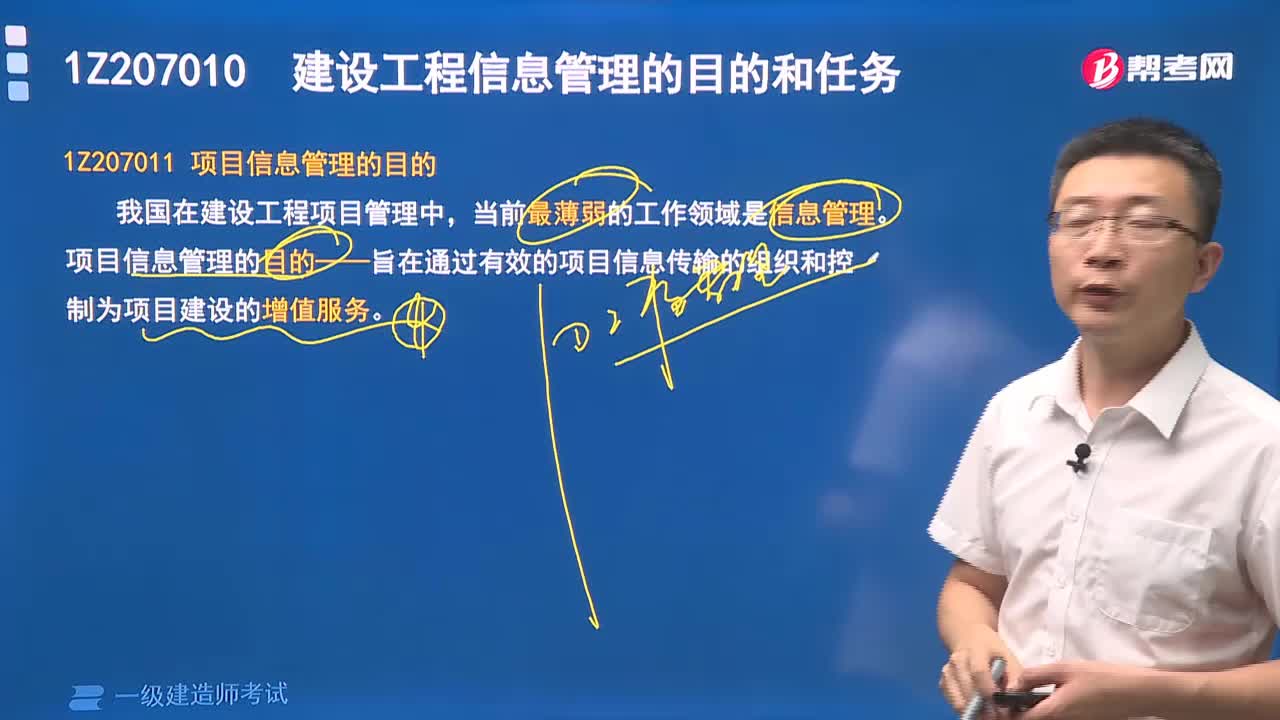 1Z207010 建设工程信息管理的目的和任务
帮考网
1Z207011 项目信息管理的目的
我国在建设工程项目管理中，当前最薄弱的工作领域是信息管理。
项目信息管理的目的——旨在通过有效的项目信息传输的组织和控
制为项目建设的增值服务。
一级建造师考试